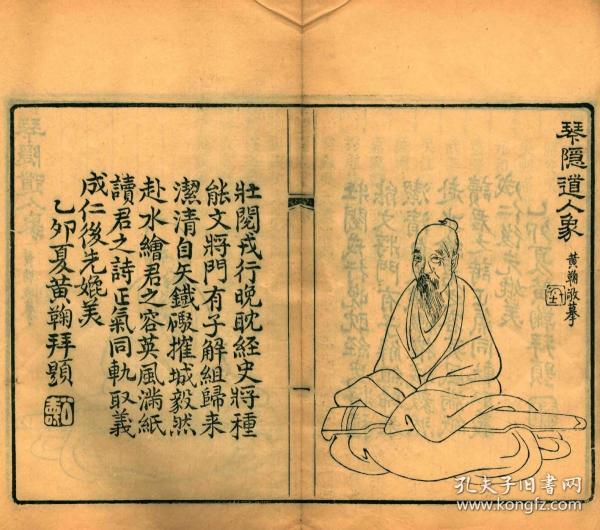 琴隱道人象
黃鞠敬摹
壯閱戎行晚耽經史將種
能文將門有子解組歸来
潔清自矢鐵礮摧城毅然
赴水繪君之容英風滿紙
讀君之詩正氣同軌取義
成仁後先媲美
乙卯夏黃鞠拜題
一
孔夫子旧书网
www.kongfz.com